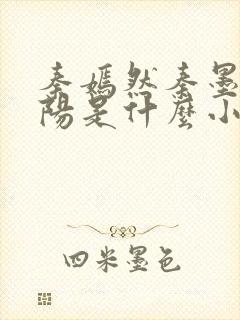 秦嫣然秦墨
阳是什麼小
四米墨色